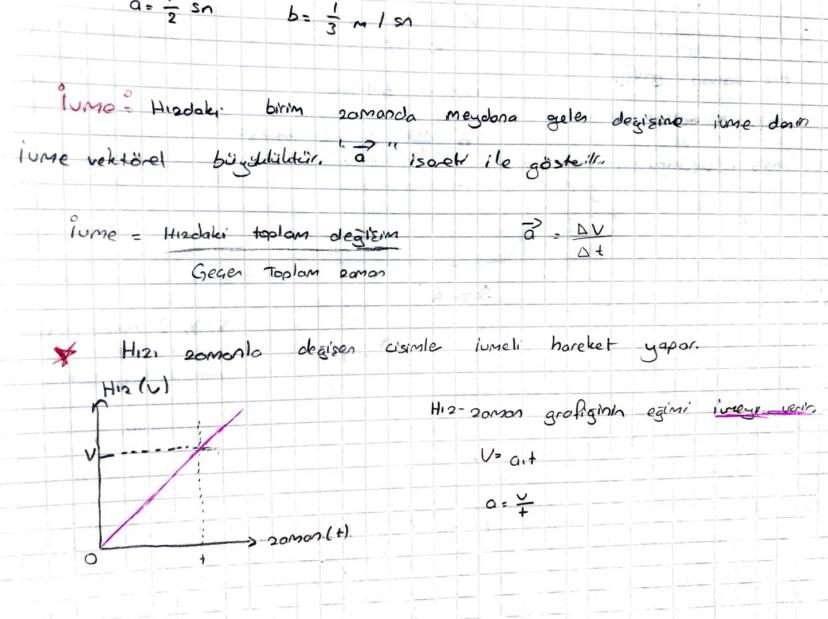 a = 1/2 sn b = 1/3 m / sn
İvme = Hızdaki birim zamanda meydana gelen değişime ivme denir
ivme vektörel büyüklüktür. "a⃗" işareti ile gösterilir.
İvme = Hızdaki toplam değişim / Geçen Toplam zaman a⃗ = ΔV / Δt
Hızı zamanla değişen cisimle ivmeli hareket yapar.
Hız (v)
Hız-zaman grafiğinin eğimi ivmeyi verir.
V
V = a.t
a = v/t
zaman (t)
0 t